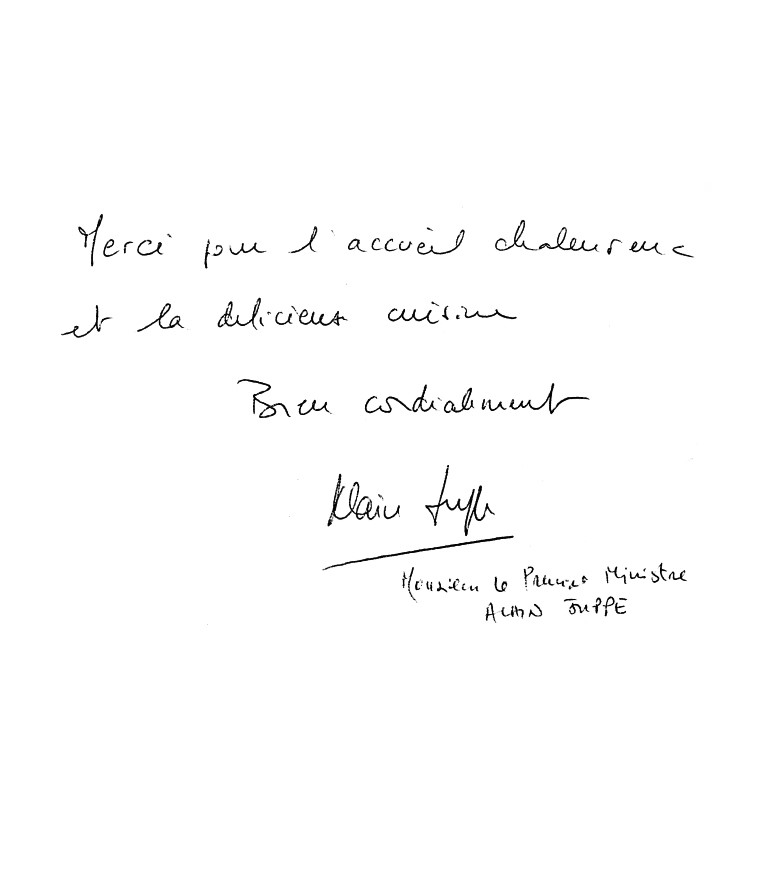 Merci pour l'accueil chaleureux
et la delicieuse cuisine
Bien cordialement
Alain Juppé
Monsieur le Premier Ministre
ALAIN JUPPE